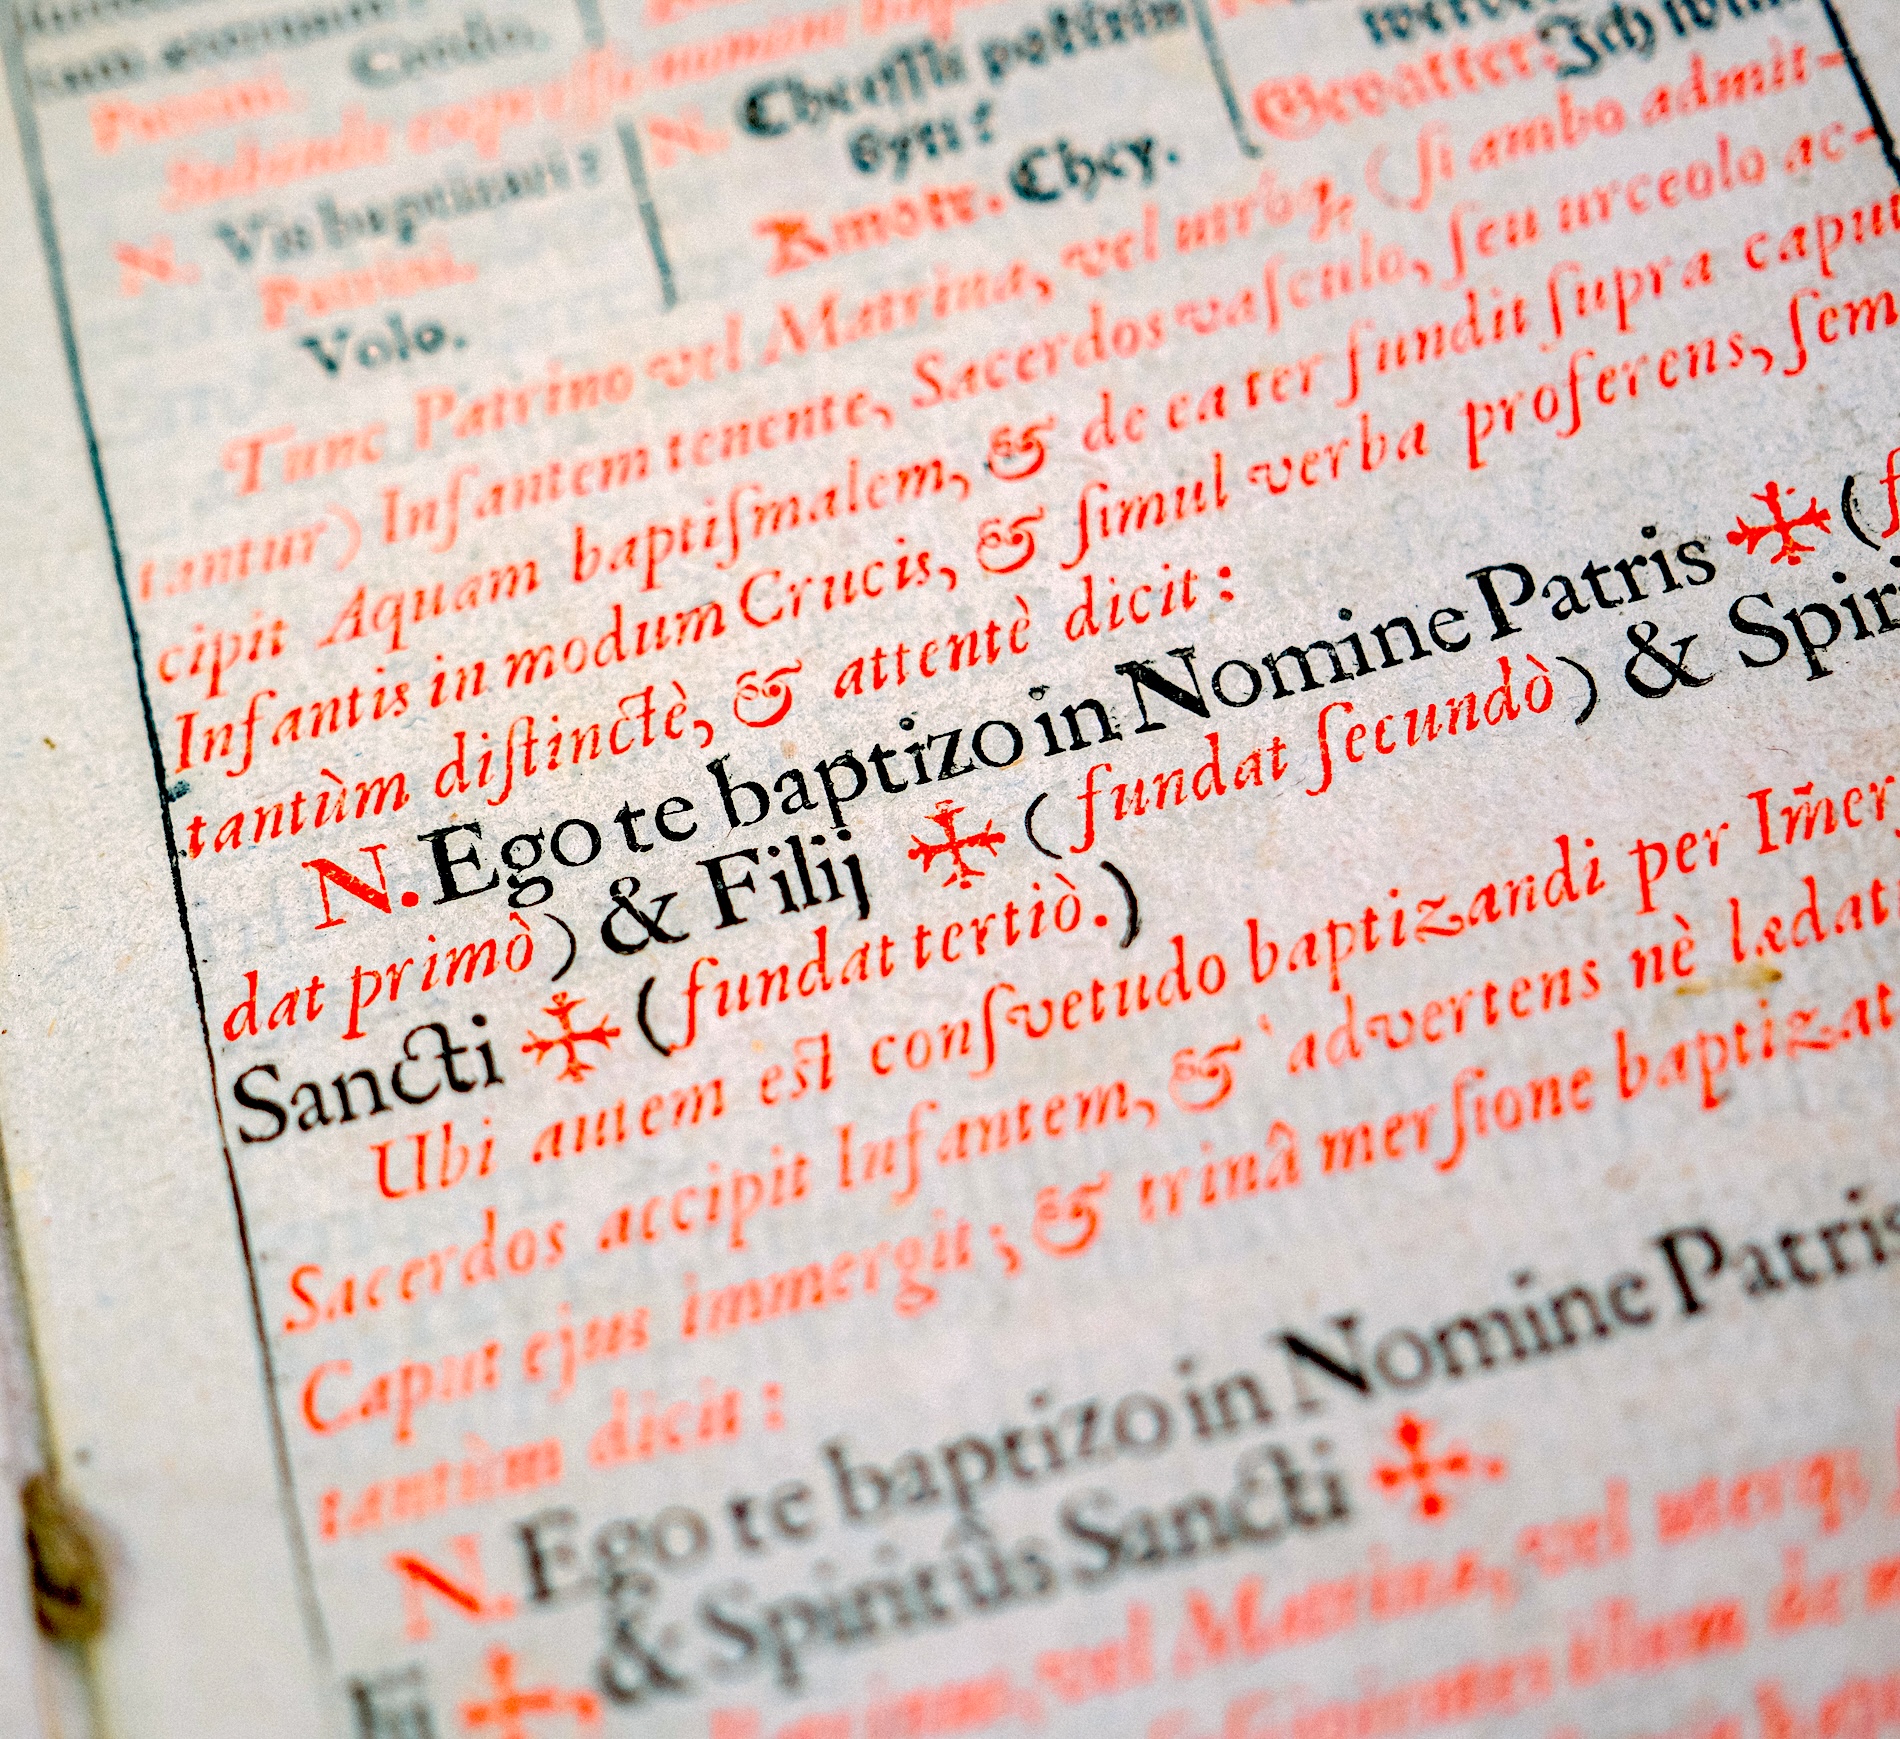 Credo.
Patrini.
N. Vis baptizari?
Patrini.
Volo.
N.
Amotr. Chcy.
Gevatter. Ich will
Tunc Patrino vel Matrina, vel utróq; (ſi ambo admit-
tantur) Infantem tenente, Sacerdos vaſculo, ſeu urceolo ac-
cipit Aquam baptiſmalem, & de ea ter fundit ſupra caput
Infantis in modum Crucis, & ſimul verba proferens, ſem
tantùm diſtinctè, & attentè dicit:
N. Ego te baptizo in Nomine Patris ✠ (f
dat primò) & Filij ✠ (fundat ſecundò) & Spiri
Sancti ✠ (fundat tertiò.)
Ubi autem eſt conſvetudo baptizandi per Im̃er
Sacerdos accipit Infantem, & advertens nè lædat
Caput ejus immergit; & trinâ merſione baptizat
tantùm dicit:
N. Ego te baptizo in Nomine Patris
✠ & Spiritûs Sancti ✠
vel Matrina, vel uterq;